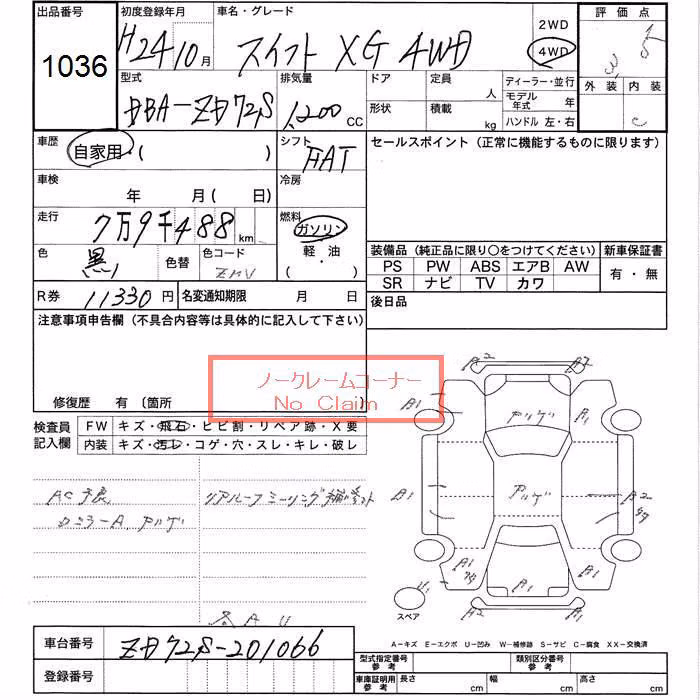 出品番号
1036
初度登録年月
H24 10月
車名・グレード
スイフト XG 4WD
2WD
4WD
評価点
3.5
外装 内装
C
型式
DBA-ZD72S
排気量
1,200 CC
ドア
定員 人
形状
積載 kg
ディーラー・並行
モデル年式 年
ハンドル 左・右
車歴
自家用・( )
シフト
FAT
セールスポイント(正常に機能するものに限ります)
車検
年 月(日)
冷房
走行
7万9千488 km
燃料
ガソリン
軽・油
( )
色
黒
色替
色コード
ZMV
装備品(純正品に限り〇をつけてください)
PS PW ABS エアB AW
SR ナビ TV カワ
新車保証書
有・無
R券 11330円
名変通知期限 月 日
後日品
注意事項申告欄(不具合内容等は具体的に記入して下さい)
ノークレームコーナー
No Claim
修復歴 有(箇所 )
検査員記入欄
FW キズ・飛石・ヒビ割・リペア跡・X要
内装 キズ・汚レ・コゲ・穴・スレ・キレ・破レ
A2 A7
A1 アゲ A1
A1 アゲ A2
A1 A1
A2 A1
スペア
車台番号
ZD72S-201066
登録番号
A-キズ E-エクボ U-凹み W-補修跡 S-サビ C-腐食 XX-交換済
型式指定番号 参考
類別区分番号 参考
車庫証明用 参考
長さ cm 幅 cm 高さ cm